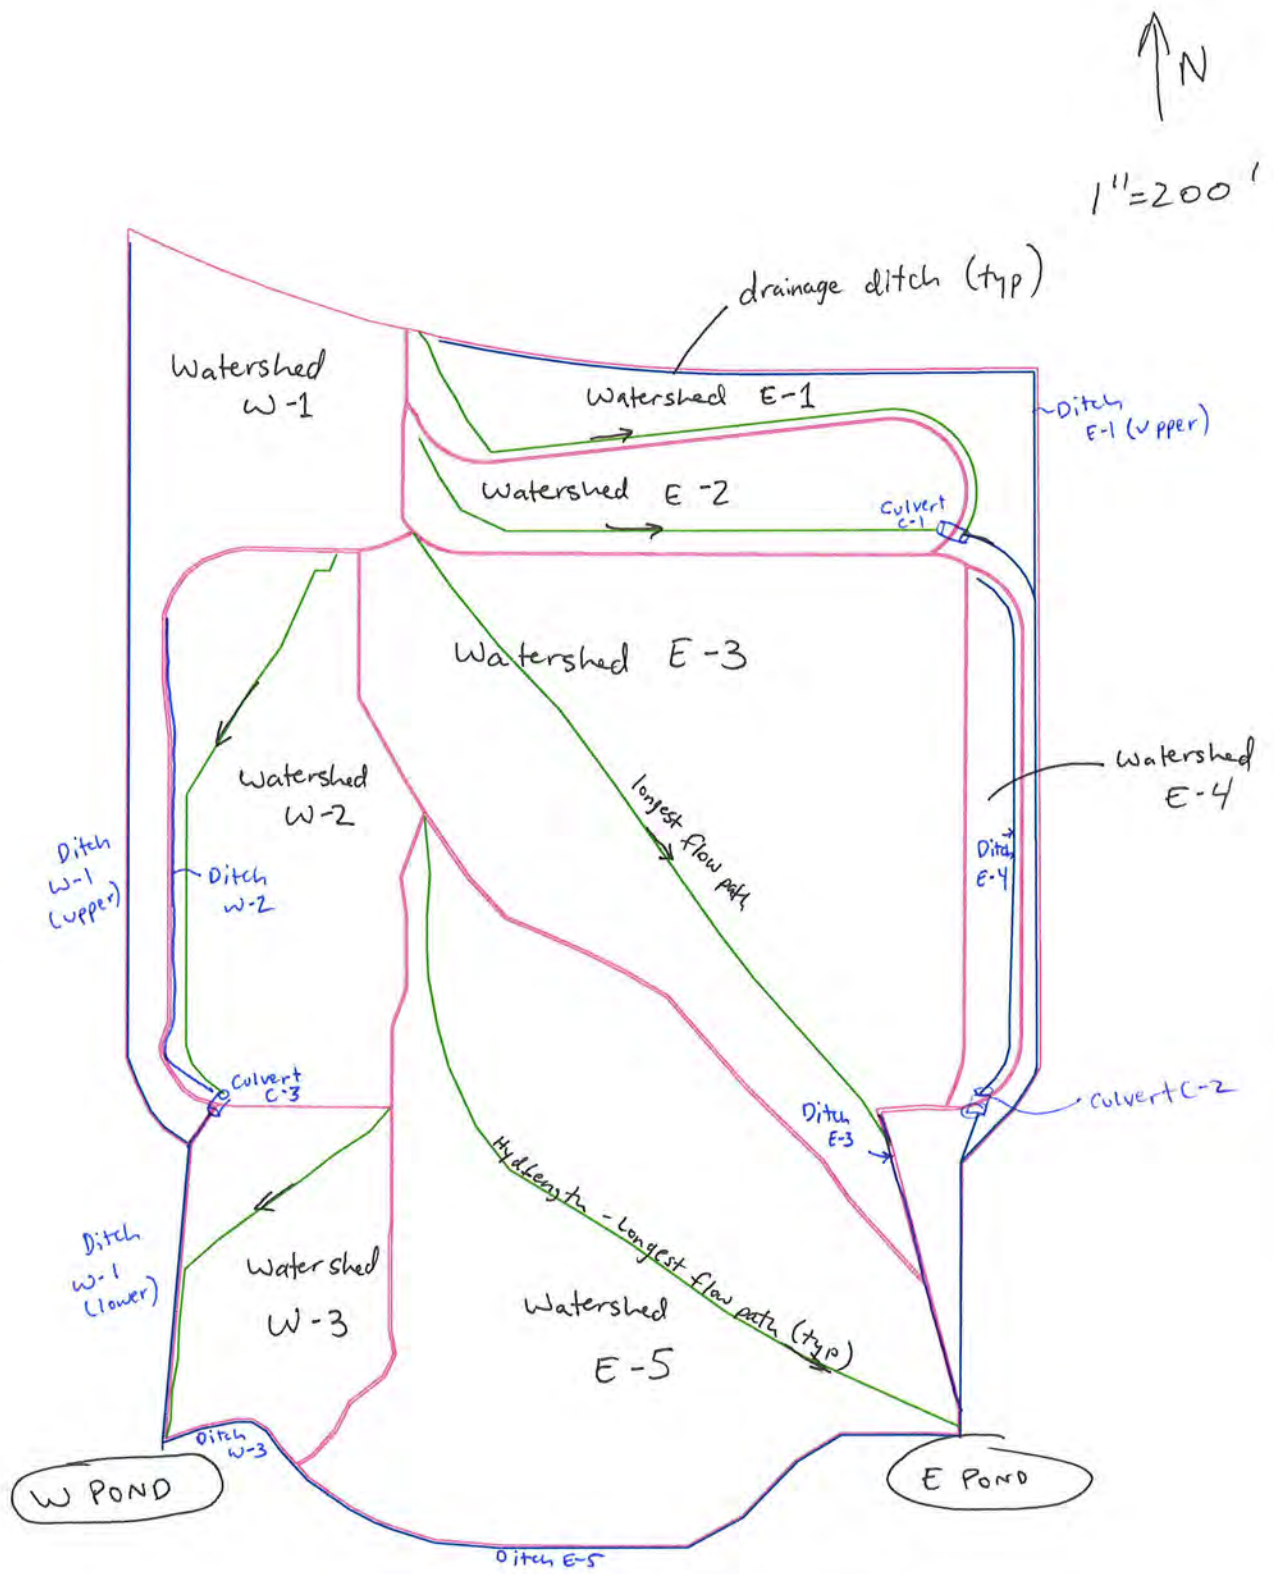 N
1"=200'
drainage ditch (typ)
Watershed
W-1
Watershed E-1
Ditch
E-1 (upper)
Watershed E-2
Culvert
C-1
Watershed E-3
Watershed
E-4
Watershed
W-2
longest flow path
Ditch
W-1
(upper)
Ditch
W-2
Ditch
E-4
Culvert
C-3
Culvert C-2
Ditch
E-3
HydLength - Longest flow path (typ)
Ditch
W-1
(lower)
Watershed
W-3
Watershed
E-5
Ditch
W-3
W POND
E POND
Ditch E-5